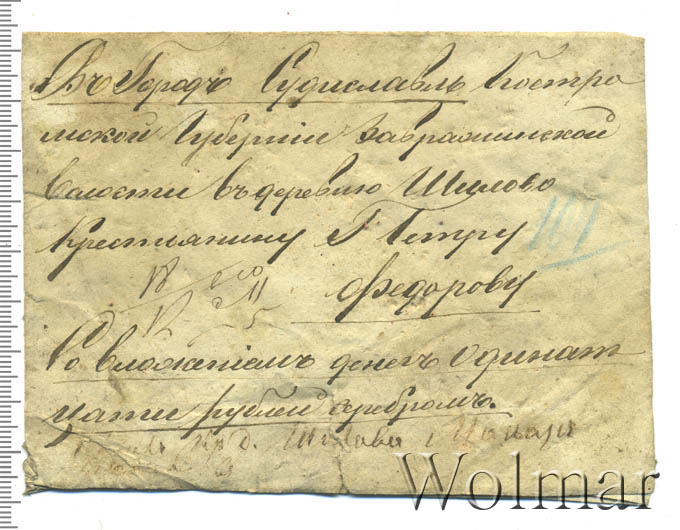 Въ Городъ Судиславль Костро
мской Губернiи Завражинской
волости въ деревню Шилово
Крестьянину Г Петру
161
Федорову
Со вложенiемъ денегъ Одинат
цати рублей серебромъ.
Кр д. Шилова
Wolmar